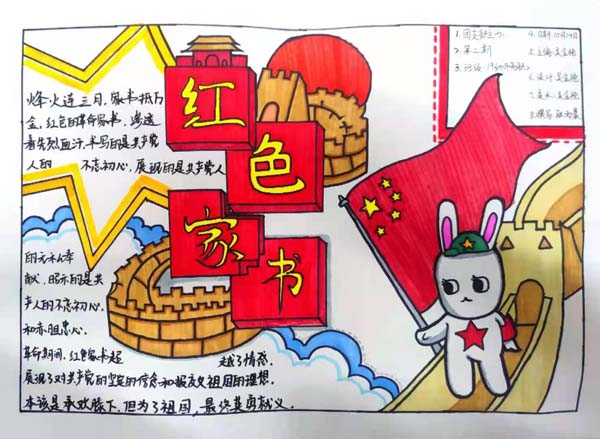 红
色
家
书
烽火连三月,家书抵万
金,红色的革命家书,渗透
着先烈血汗,书写的是共产党
人的 不忘初心,展现的是共产党人
的无私奉
献,昭示的是共
产人的不忘初心,
和赤胆忠心。
革命期间,红色家书超
越了情感,
展现了对共产党的坚定的信念和报效祖国的理想。
本该是承欢膝下,但为了祖国,最终英勇就义。
1.团支部
2.第二期
3.班级:19幼
4.日期:10月14日
5.主编:吴金艳
6.设计:吴金艳
7.美术:吴金艳
8.撰写